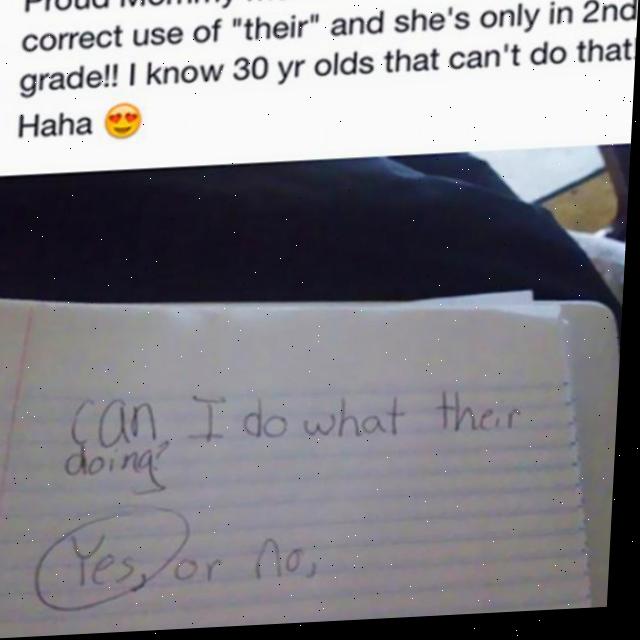 Proud Mommy
correct use of "their" and she's only in 2nd
grade!! I know 30 yr olds that can't do that
Haha 😍
can I do what their
doing?
Yes, or no,